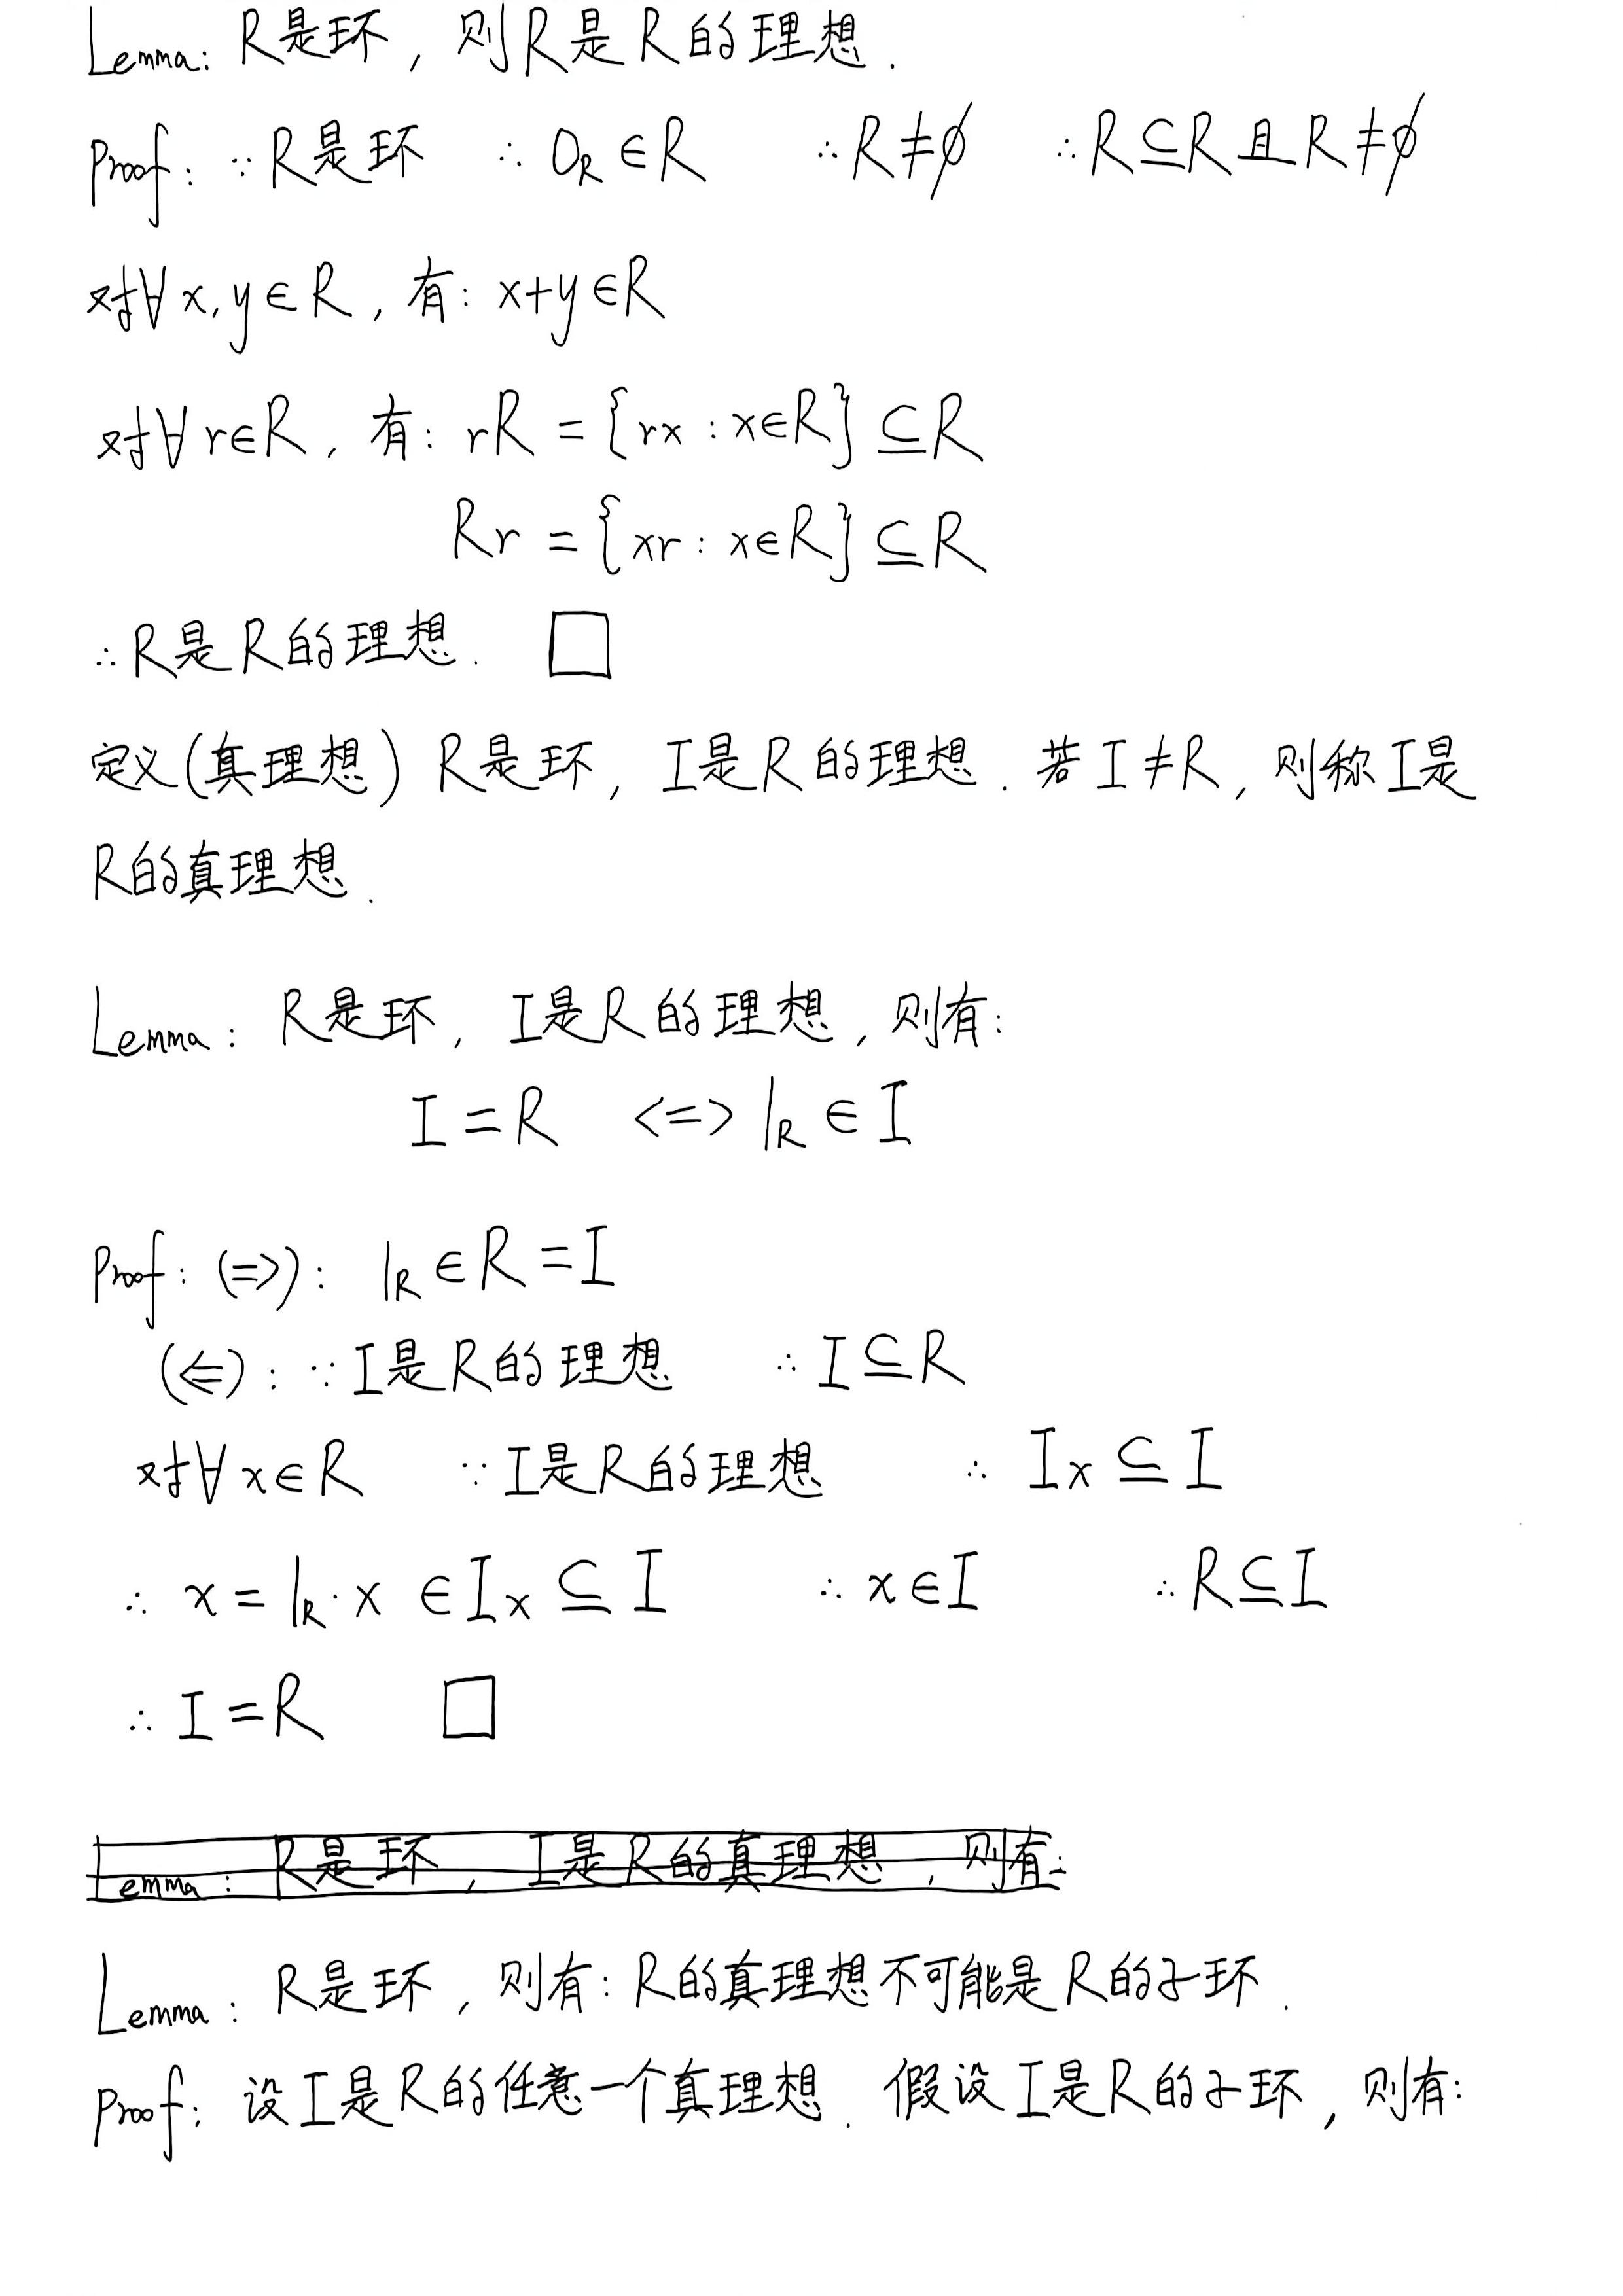 Lemma: R是环, 则R是R的理想.
Proof: ∵R是环 ∴0_R∈R ∴R≠∅ ∴R⊆R且R≠∅
对∀x,y∈R, 有: x+y∈R
对∀r∈R, 有: rR = {rx : x∈R} ⊆R
Rr = {xr : x∈R} ⊆R
∴R是R的理想. □
定义(真理想) R是环, I是R的理想. 若I≠R, 则称I是
R的真理想.
Lemma: R是环, I是R的理想, 则有:
I=R <=> 1_R∈I
Proof: (=>): 1_R∈R=I
(<=): ∵I是R的理想 ∴I⊆R
对∀x∈R ∵I是R的理想 ∴Ix⊆I
∴ x=1_R·x ∈Ix⊆I ∴x∈I ∴R⊆I
∴I=R □
Lemma: R是环, I是R的真理想, 则有:
Lemma: R是环, 则有: R的真理想不可能是R的子环.
Proof: 设I是R的任意一个真理想. 假设I是R的子环, 则有: